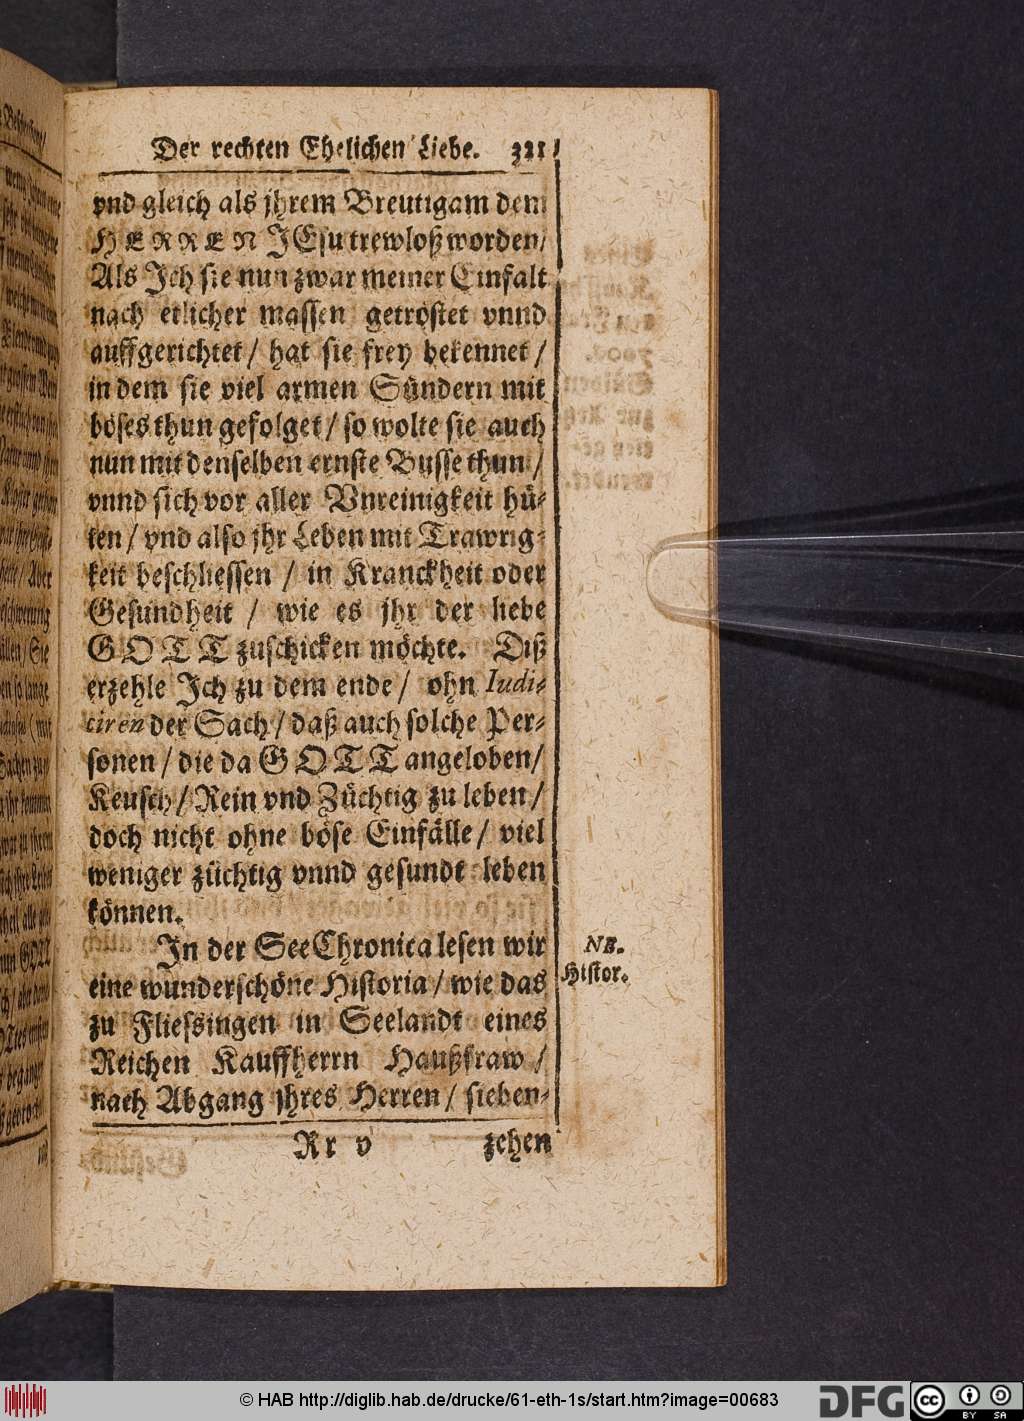 Der rechten Ehelichen Liebe. 321
vnd gleich als jhrem Breutigam dem
HERREN JEsu trewloß worden/
Als Ich sie nun zwar meiner Einfalt
nach etlicher massen getröstet vnnd
auffgerichtet / hat sie frey bekennet /
in dem sie viel armen Sündern mit
böses thun gefolget / so wolte sie auch
nun mit denselben ernste Busse thun /
vnnd sich vor aller Vnreinigkeit hü-
ten / vnd also jhr Leben mit Trawrig-
keit beschliessen / in Kranckheit oder
Gesundheit / wie es jhr der liebe
GOTT zuschicken möchte. Diß
erzehle Ich zu dem ende / ohn Iudi-
ciren der Sach / daß auch solche Per-
sonen / die da GOTT angeloben/
Keusch / Rein vnd Züchtig zu leben /
doch nicht ohne böse Einfälle / viel
weniger züchtig vnnd gesundt leben
können.
In der SeeChronica lesen wir
eine wunderschöne Historia / wie das
zu Fliessingen in Seelandt eines
Reichen Kauffherrn Haußfraw /
nach Abgang jhres Herren / sieben-
Rr v zehen
NB.
Histor.
© HAB http://diglib.hab.de/drucke/61-eth-1s/start.htm?image=00683
DFG
cc BY SA